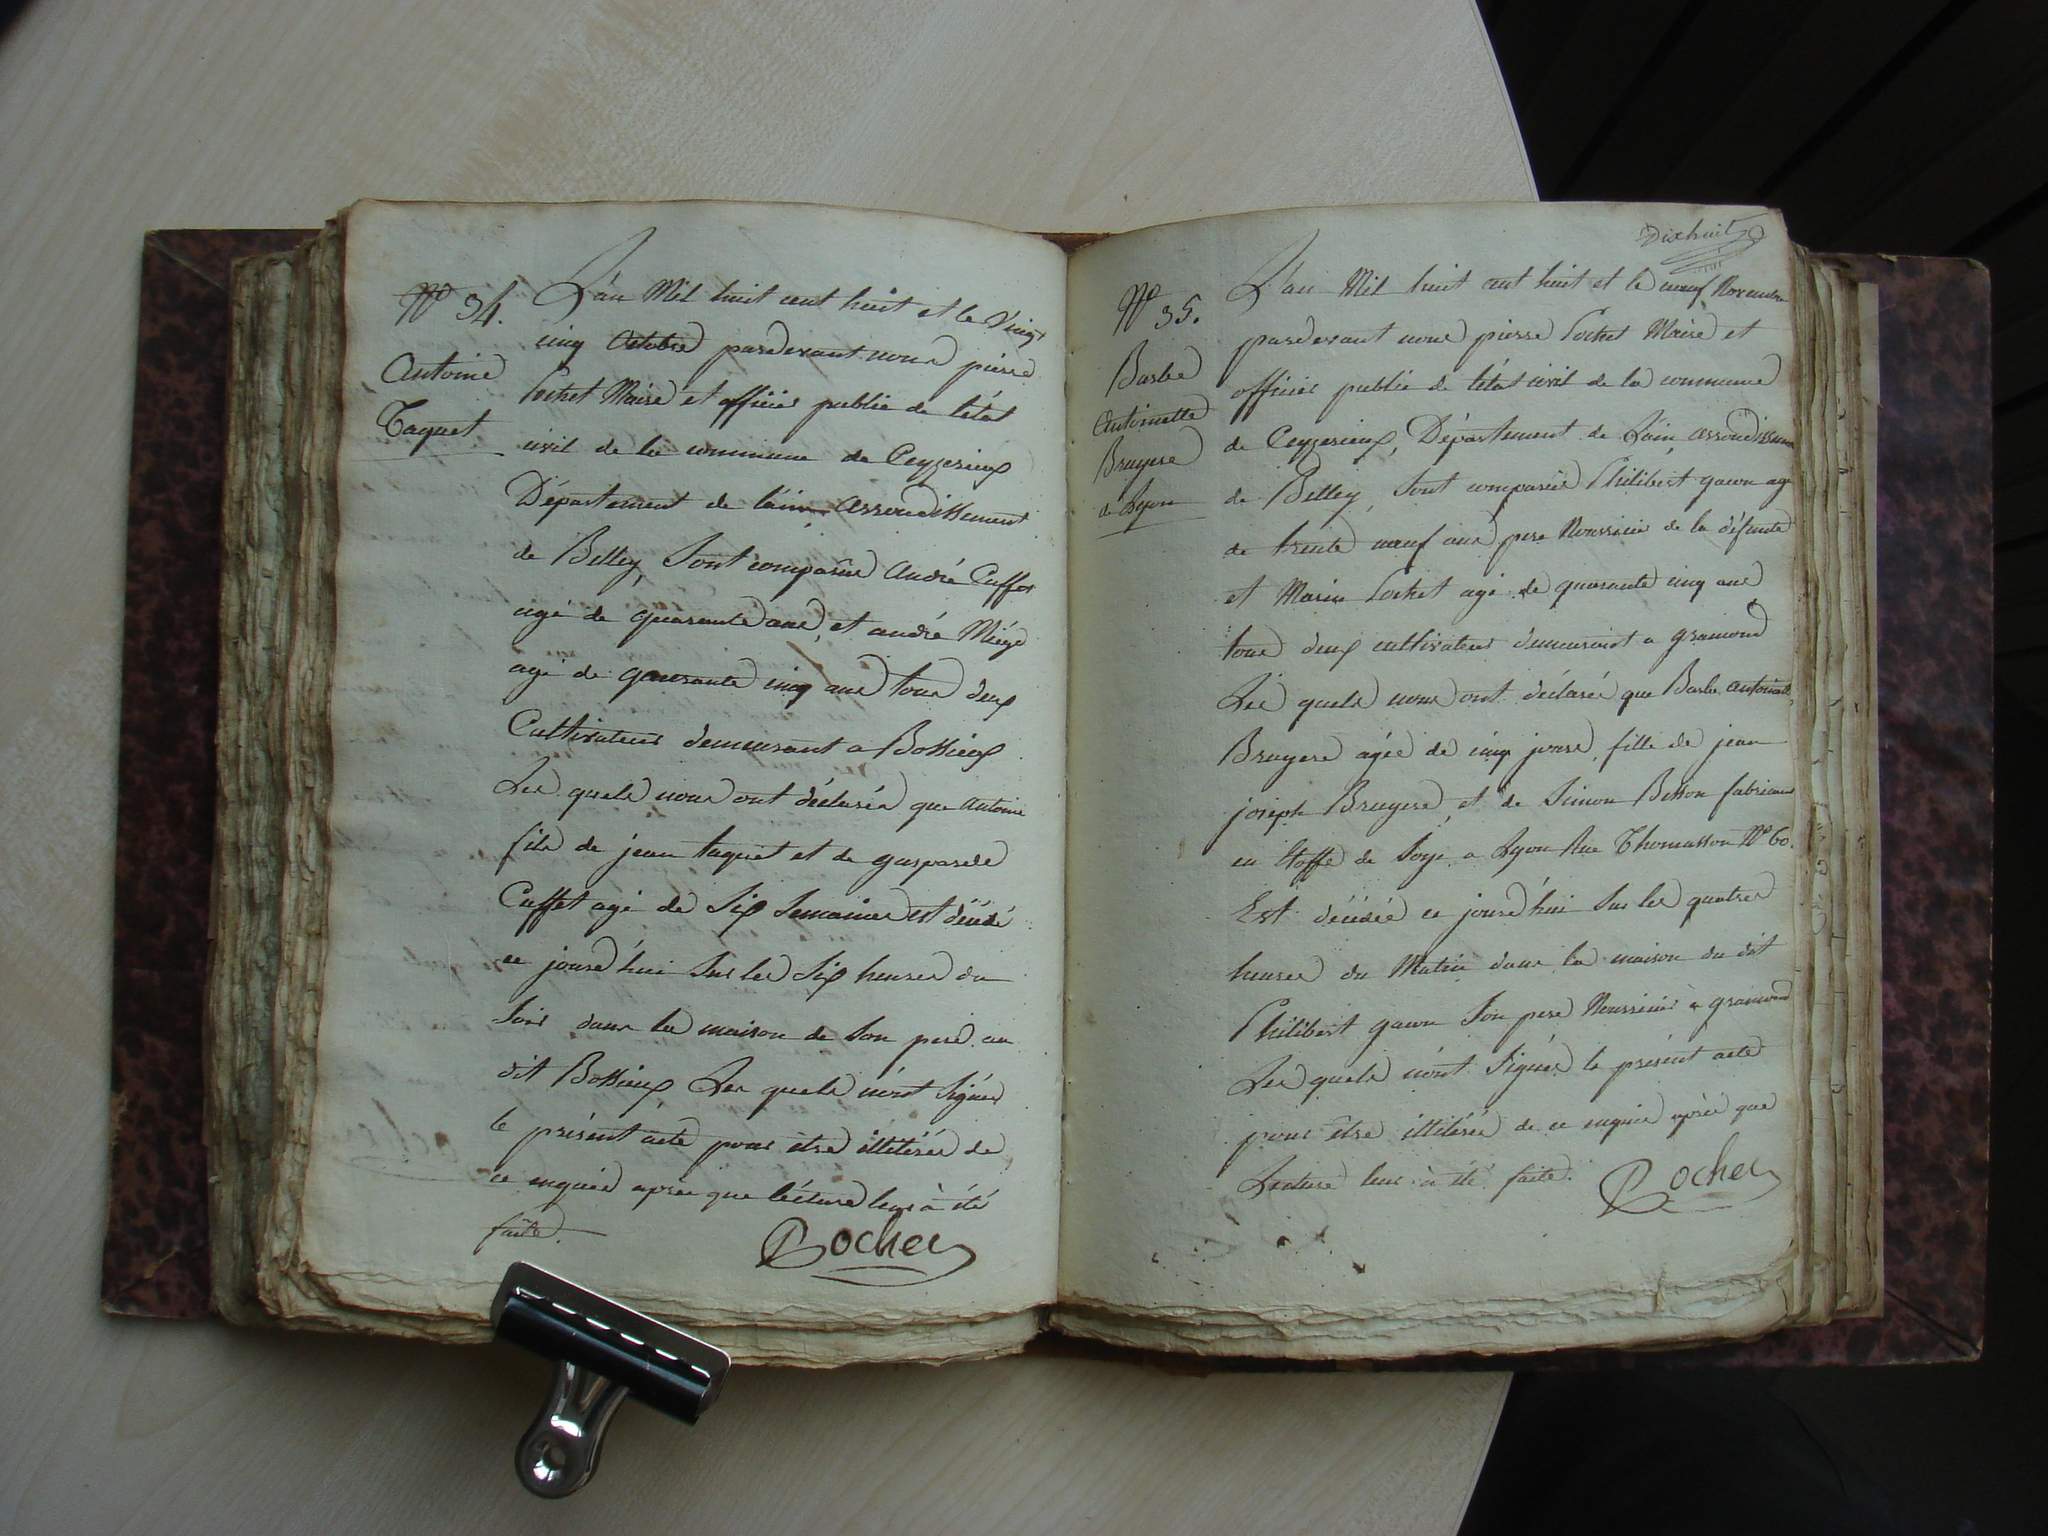 N.º 34.
Antoine
Taquet
L'an Mil huit cent huit et le Vingt
cinq Octobre pardevant nous pierre
Cochet Maire et officier public de l'état
civil de la commune de Ceyzerieux
Département de l'ain, arrondissement
de Belley, Sont comparus André Cuffet
agé de quarante ans, et andré Miège
agé de quarante cinq ans tous deux
Cultivateurs demeurant a Bossieux
Les quels nous ont déclarés que Antoine
fils de jean taquet et de gasparde
Cuffet agé de Six Semaines est décédé
ce jourd'hui Sur les Six heures du
Soir dans la maison de Son pere au
dit Bossieux Les quels n'ont Signés
le présent acte pour etre illitérés de
ce enquis après que lécture leur à été
faite.
Cochet
Dixhuit
N.º 35.
Barbe
Antoinette
Bruyere
de Lyon
L'an Mil huit cent huit et le neuf Novembre
pardevant nous pierre Cochet Maire et
officier public de l'état civil de la commune
de Ceyzerieux, Département de L'ain, arrondissement
de Belley, Sont comparus Philibert agé
de trente neuf ans pere Nourricier de la défunte
et Marin Cochet agé de quarante cinq ans
tous deux cultivateurs demeurant a gramond
Les quels nous ont déclarés que Barbe antoinette
Bruyere agée de cinq jours, fille de jean
joseph Bruyere, et de Simon Besson fabricans
en Etoffe de Soye a Lyon Rue Thomasson Nº 60.
Est décédée ce jourd'hui Sur les quatres
heures du Matin dans la maison du dit
Philibert Son pere Nourricier a gramond
Les quels n'ont Signés le présent acte
pour être illitérés de ce enquis après que
Lecture leur à été faite.
Cochet